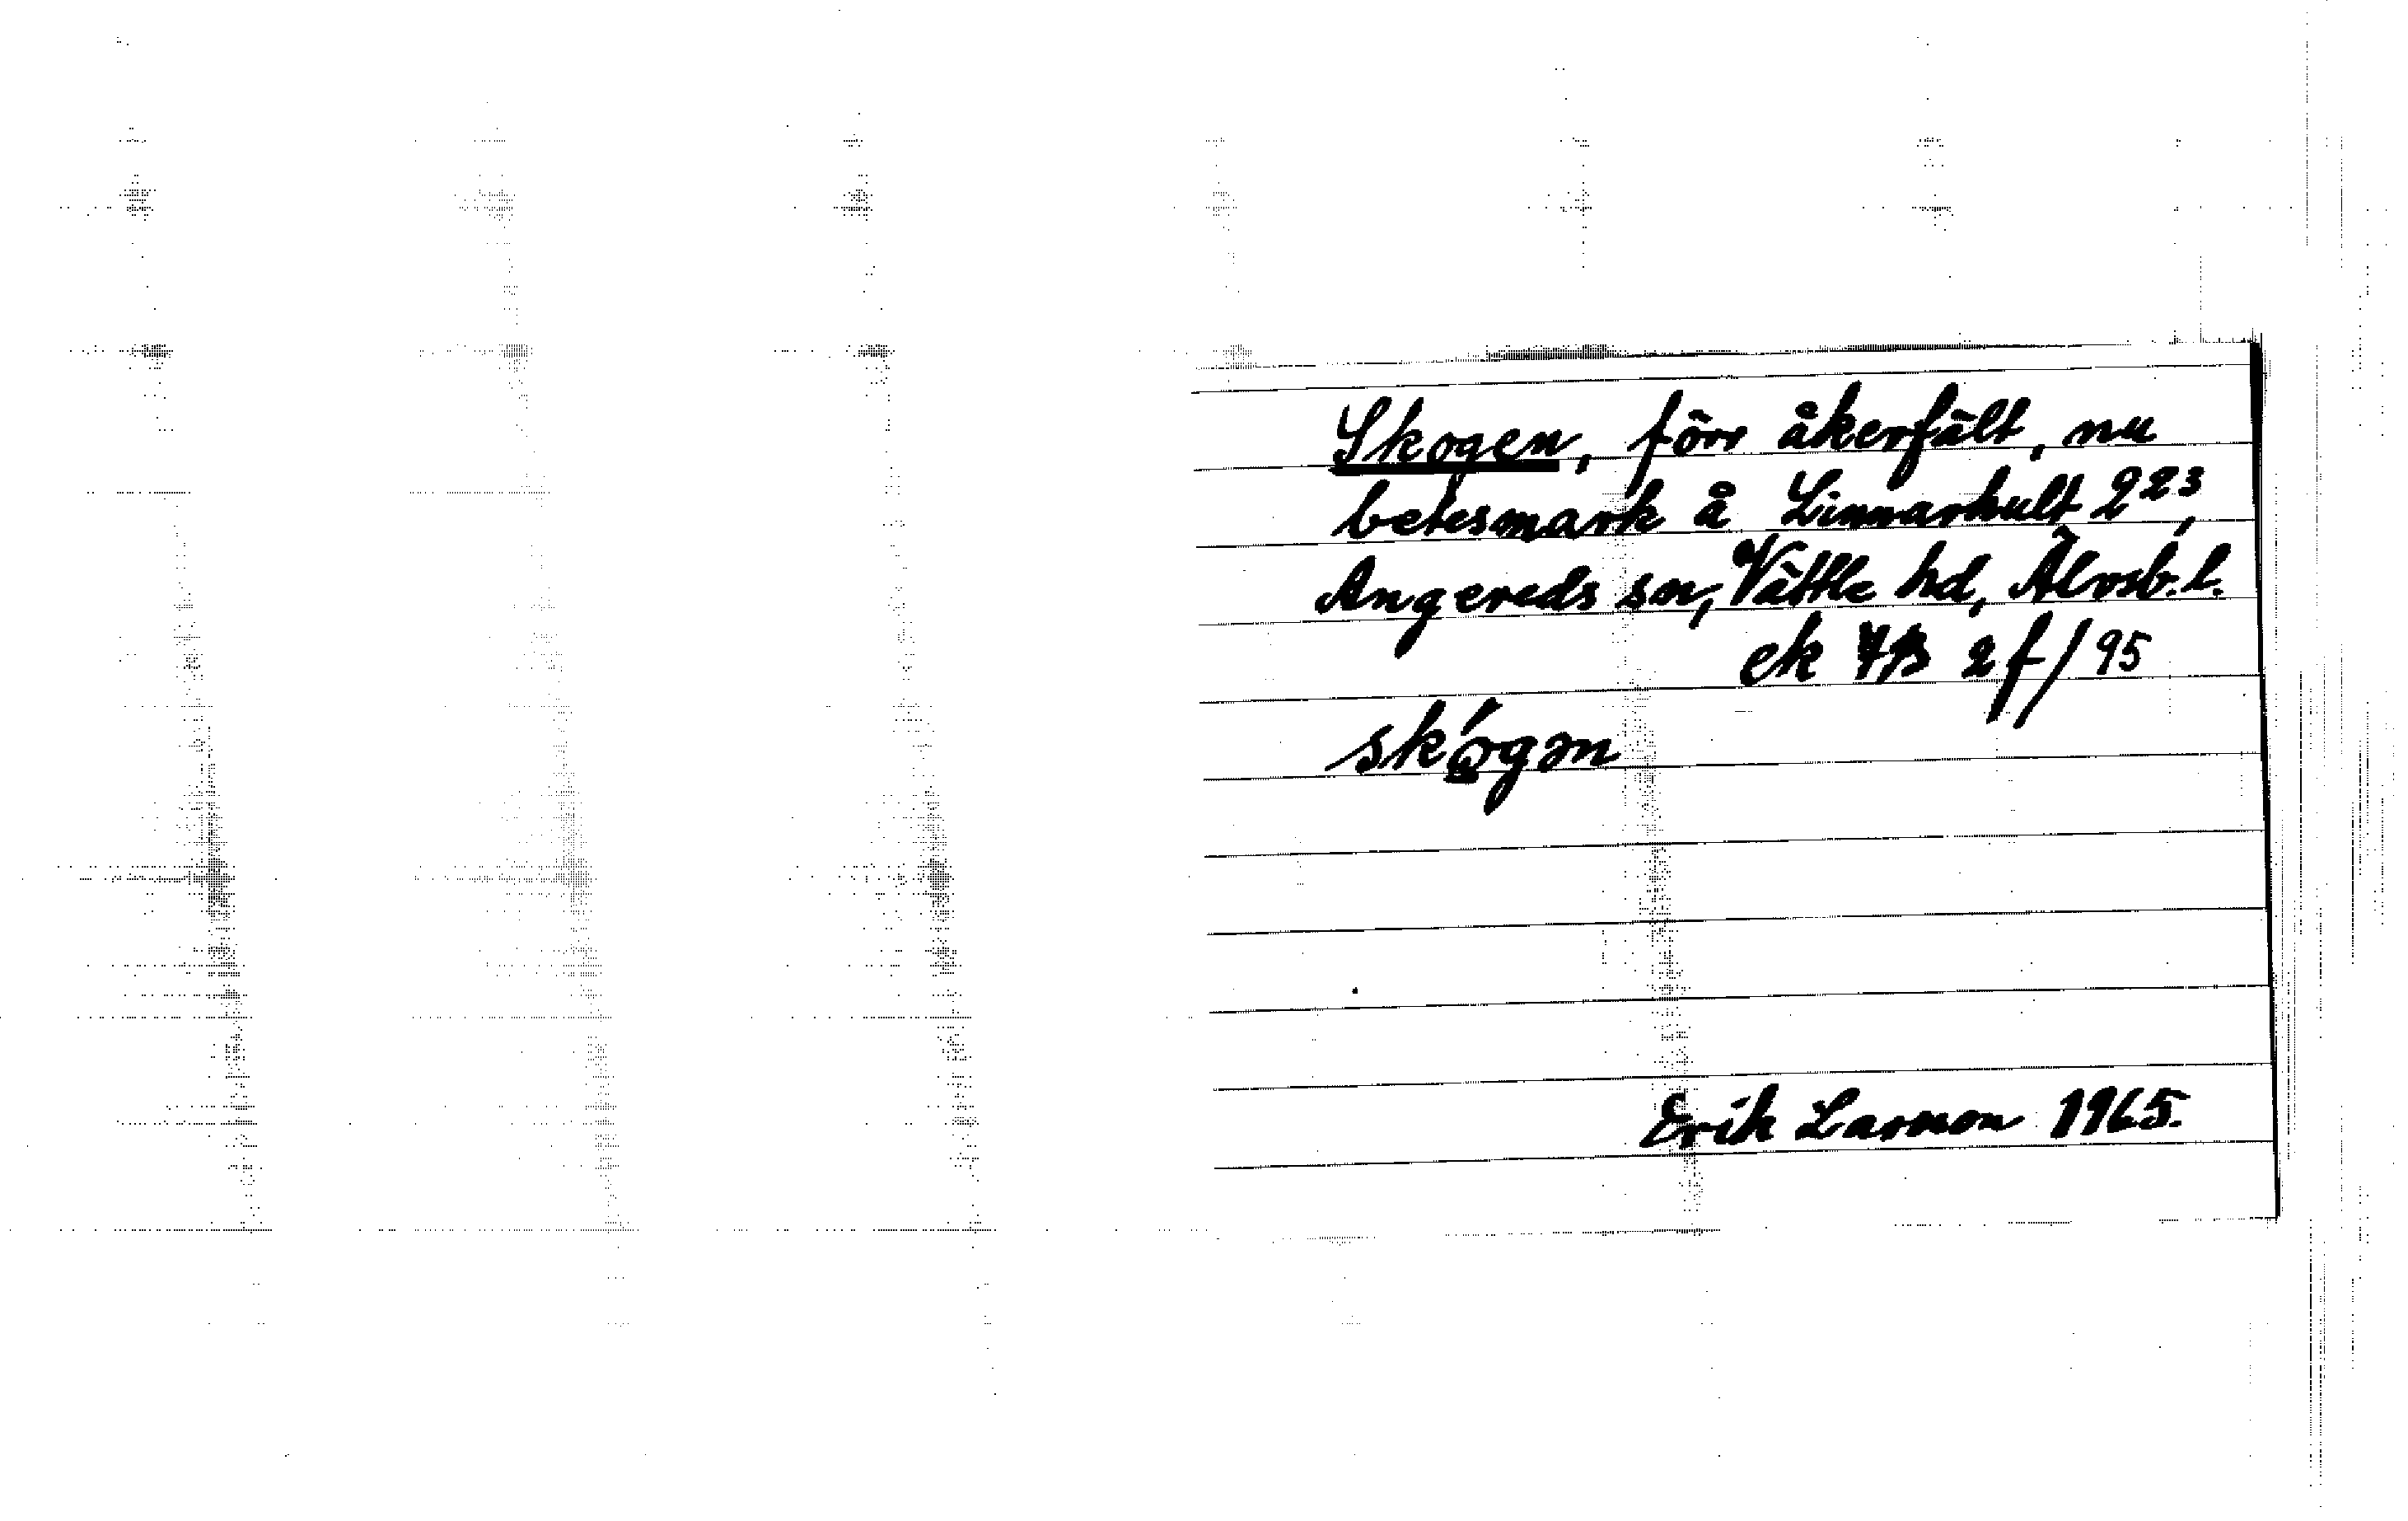 Skogen, förr åkerfält, nu
betesmark å Linnarhult 2²³,
Angereds sn, Vättle hd, Älvsb. l.
ek 7B 2f/95
skógən
Erik Larsson 1965.